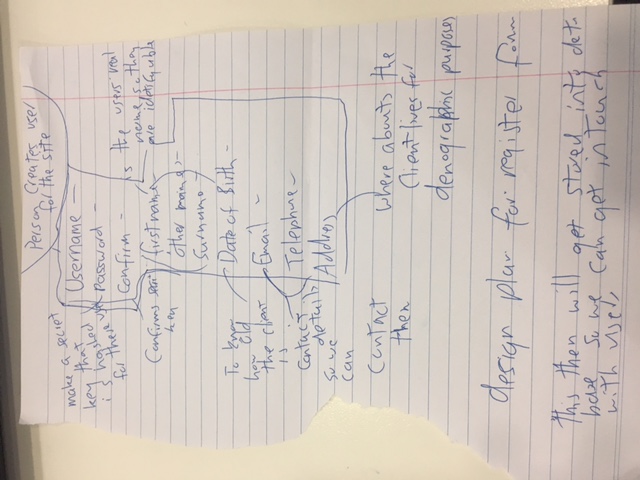 Person Creates user
for the site
make a secret
key that
is hashed
for there use
Username -
Password -
Confirm -
Confirms
key
is the users real
name, so they
are idetifyable
firstname
other names -
Surname -
To know
how old
the client
is
Date of Birth -
Email -
Telephone -
Address
Contact
details
so we
can
Contact
then
where abouts the
Client lives for
demographic purposes
design plan for register form
this then will get stored into data
base so we can get intouch
with users